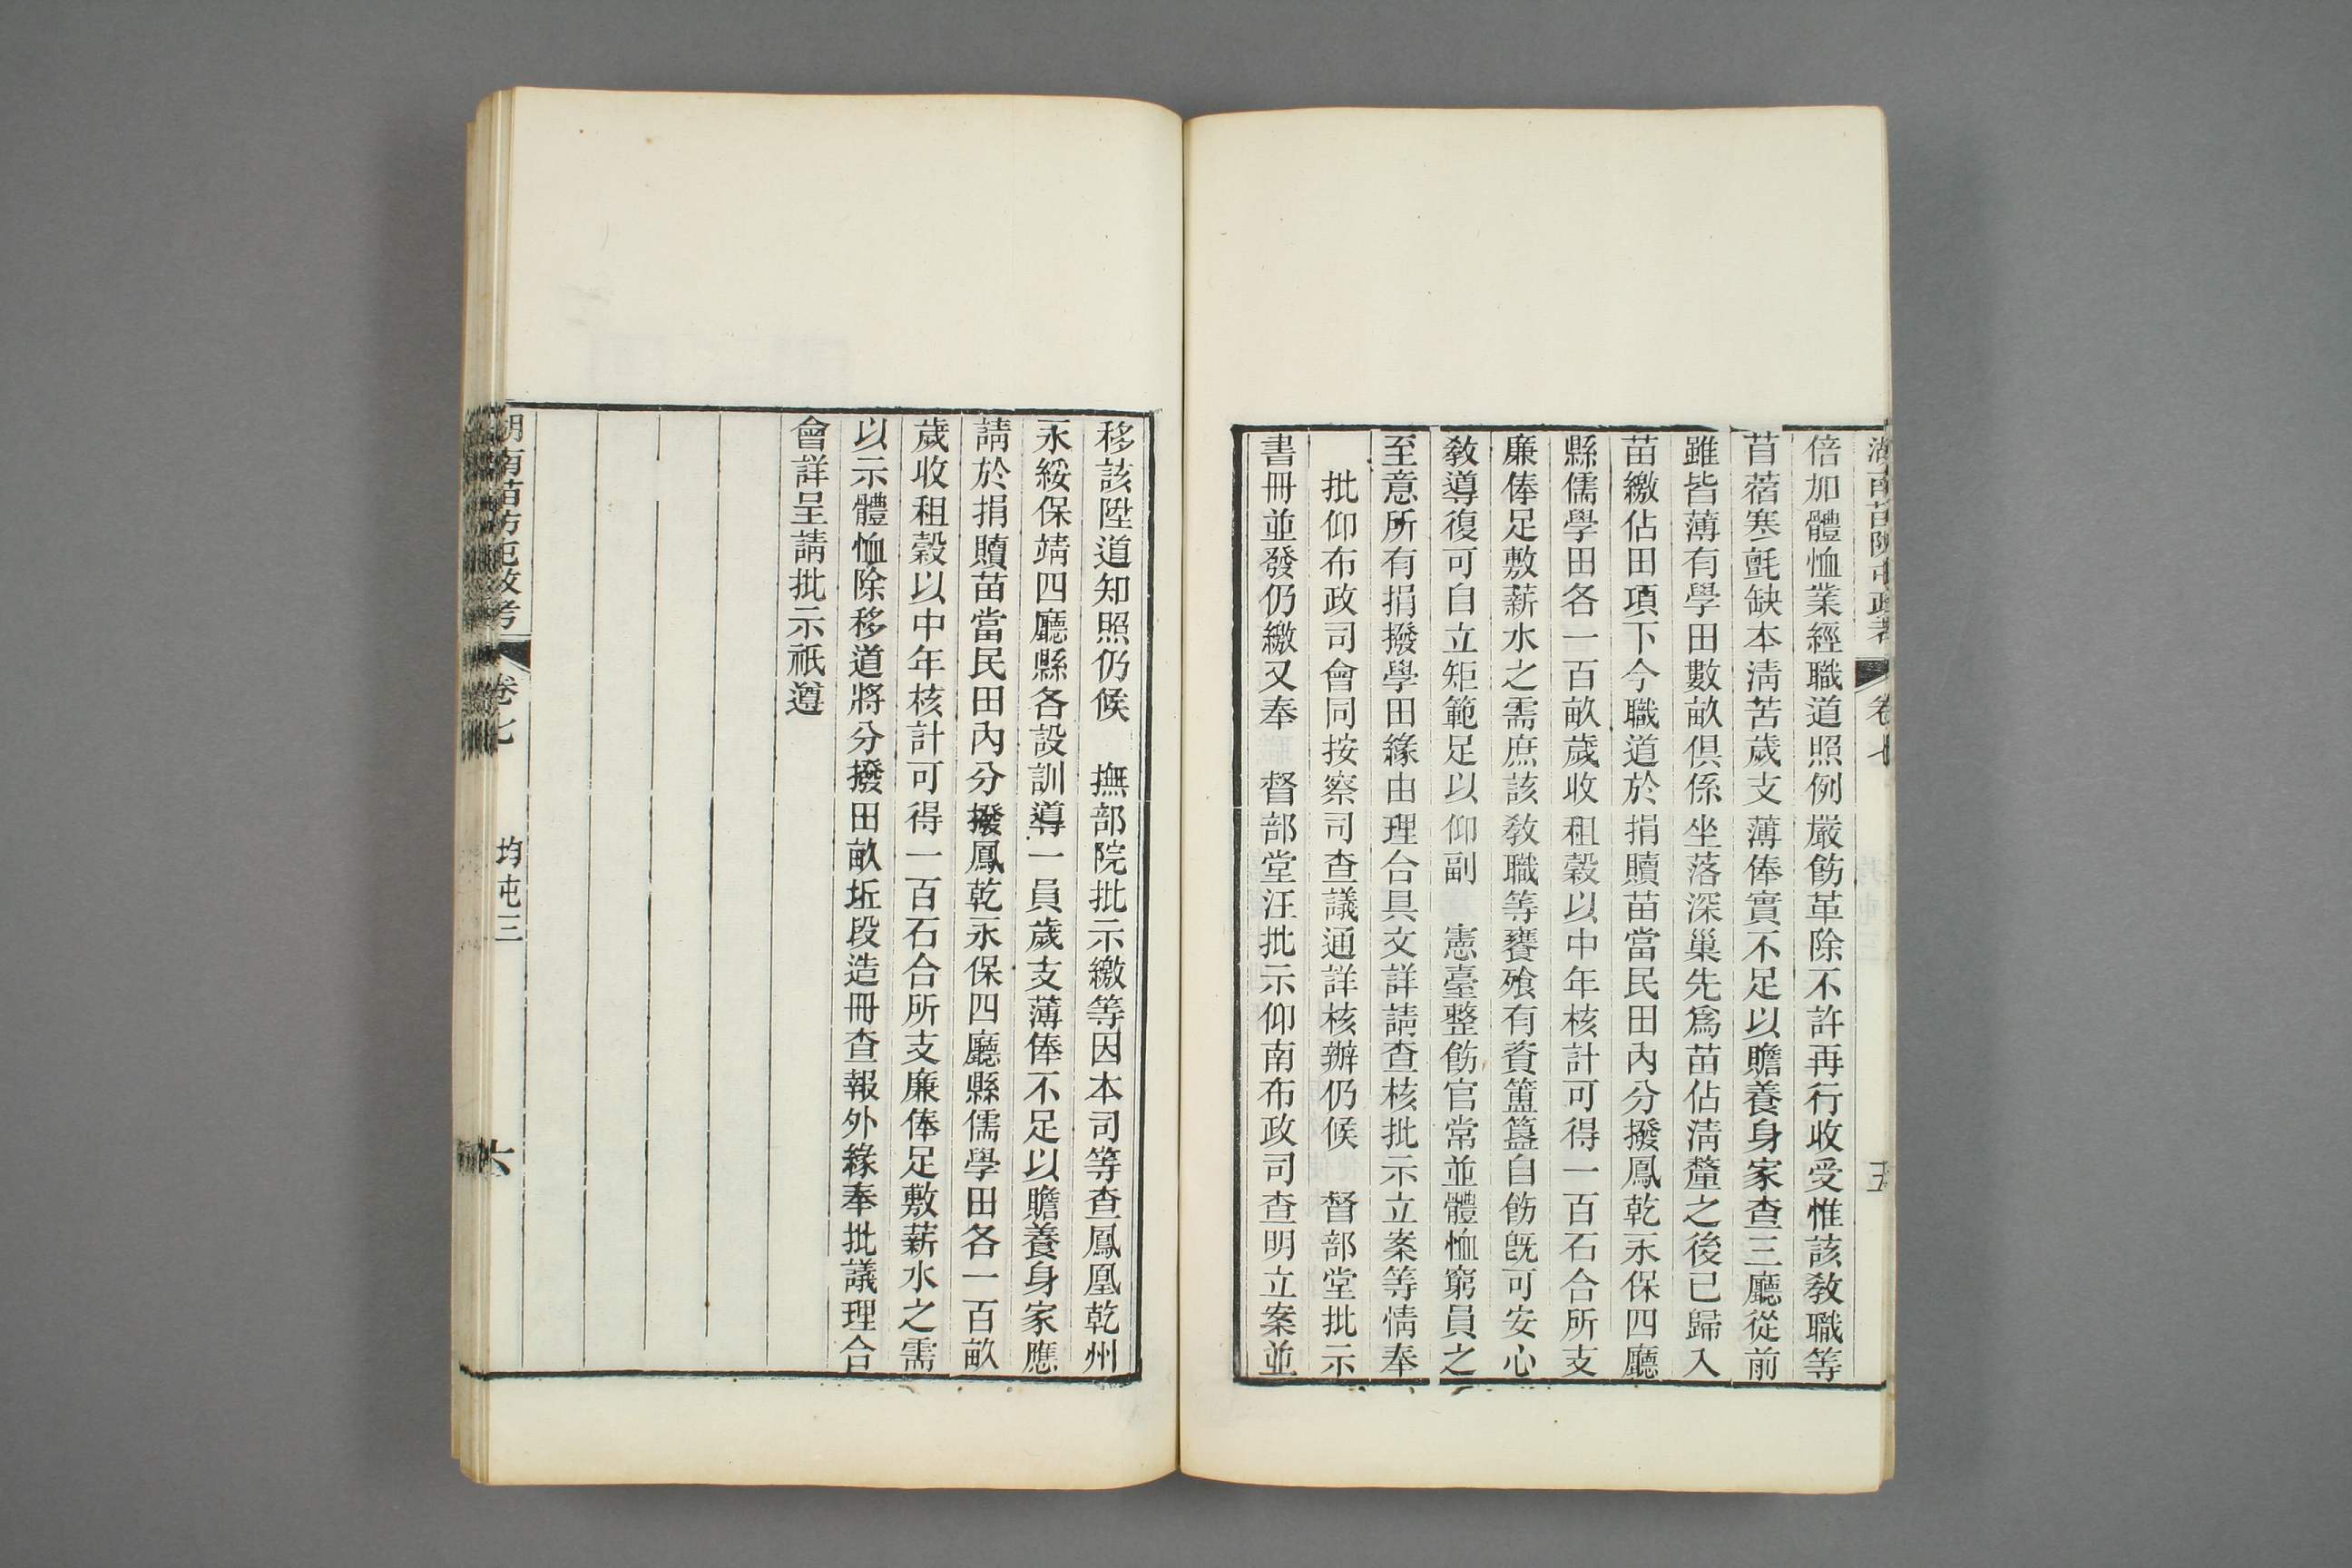 湖南苗防屯政考
卷七
五
倍加體恤業經職道照例嚴飭革除不許再行收受惟該教職等
苜蓿寒氈缺本淸苦歲支薄俸實不足以贍養身家查三廳從前
雖皆薄有學田數畝俱係坐落深巢先爲苗佔淸釐之後已歸入
苗繳佔田項下今職道於捐贖苗當民田內分撥鳳乾永保四廳
縣儒學田各一百畝歲收租穀以中年核計可得一百石合所支
廉俸足敷薪水之需庶該教職等饔飧有資簠簋自飭旣可安心
教導復可自立矩範足以仰副　憲臺整飭官常並體恤窮員之
至意所有捐撥學田緣由理合具文詳請查核批示立案等情奉
批仰布政司會同按察司查議通詳核辦仍候　督部堂批示
書冊並發仍繳又奉　督部堂汪批示仰南布政司查明立案並
移該陞道知照仍候　撫部院批示繳等因本司等查鳳凰乾州
永綏保靖四廳縣各設訓導一員歲支薄俸不足以贍養身家應
請於捐贖苗當民田內分撥鳳乾永保四廳縣儒學田各一百畝
歲收租穀以中年核計可得一百石合所支廉俸足敷薪水之需
以示體恤除移道將分撥田畝坵段造冊查報外緣奉批議理合
會詳呈請批示祇遵
湖南苗防屯政考
卷七
均屯三
六